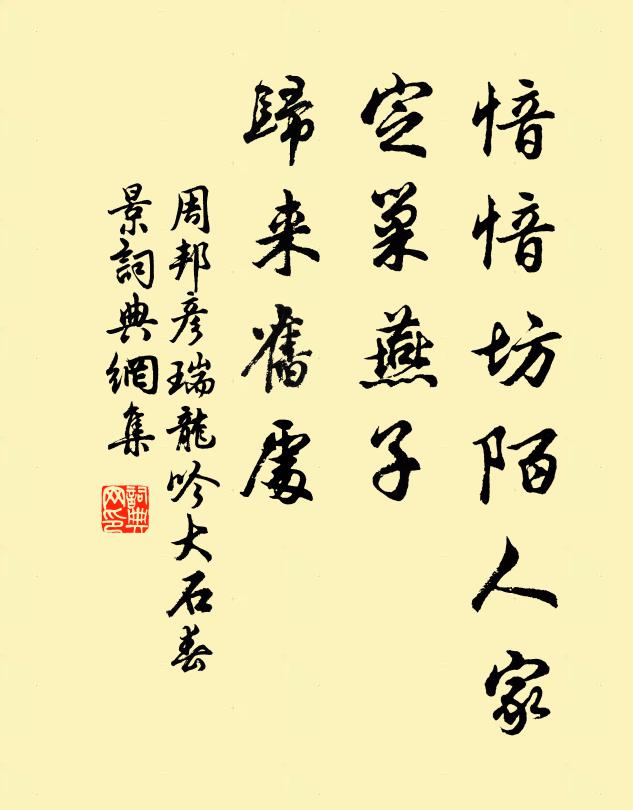 愔愔坊陌人家
定巢燕子
歸来舊處
周邦彦瑞龍吟大石春
景詞典網集
詞典網印